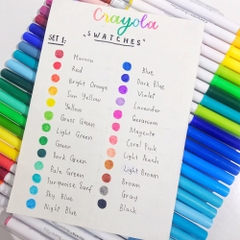 Crayola
"SWATCHES"
SET 1:
Maroon
Red
Bright Orange
Sun Yellow
Yellow
Grass Green
Light Green
Green
Dark Green
Pale Green
Turquoise Surf
Sky Blue
Night Blue
Blue
Dark Blue
Violet
Lavender
Geranium
Magenta
Coral Pink
Light Brown
Brown
Gray
Black